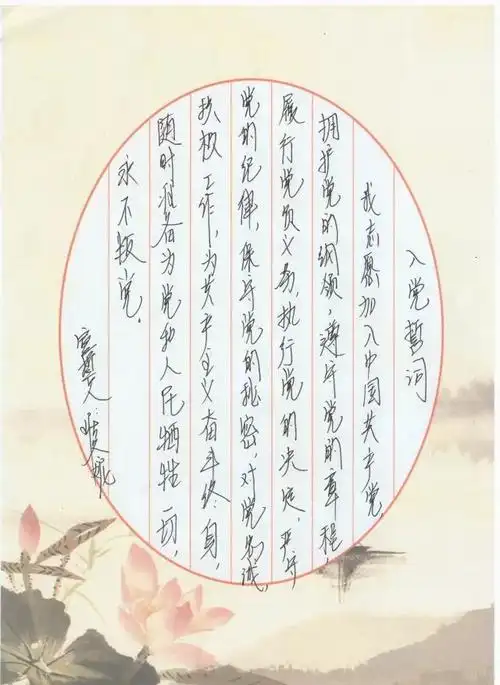 入党誓词
我志愿加入中国共产党,
拥护党的纲领,遵守党的章程,
履行党员义务,执行党的决定,严守
党的纪律,保守党的秘密,对党忠诚,
积极工作,为共产主义奋斗终身,
随时准备为党和人民牺牲一切,
永不叛党.
宣誓人: